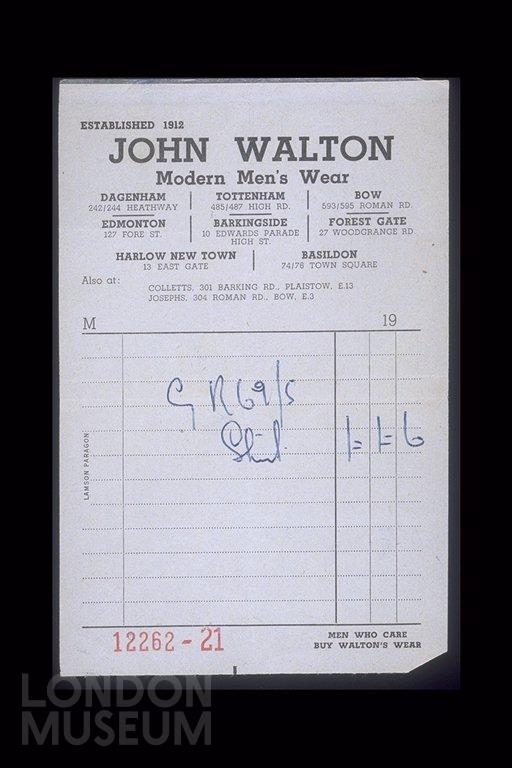 ESTABLISHED 1912
JOHN WALTON
Modern Men's Wear
DAGENHAM TOTTENHAM BOW
242/244 HEATHWAY 485/487 HIGH RD. 593/595 ROMAN RD.
EDMONTON BARKINGSIDE FOREST GATE
127 FORE ST. 10 EDWARDS PARADE 27 WOODGRANGE RD
HIGH ST.
HARLOW NEW TOWN BASILDON
13 EAST GATE 74/76 TOWN SQUARE
Also at: COLLETTS, 301 BARKING RD., PLAISTOW, E.13
JOSEPHS, 304 ROMAN RD., BOW, E.3
M 19
G R 69/5
Shirt 1 = 1 = 6
LAMSON PARAGON
12262 - 21
MEN WHO CARE
BUY WALTON'S WEAR
LONDON
MUSEUM